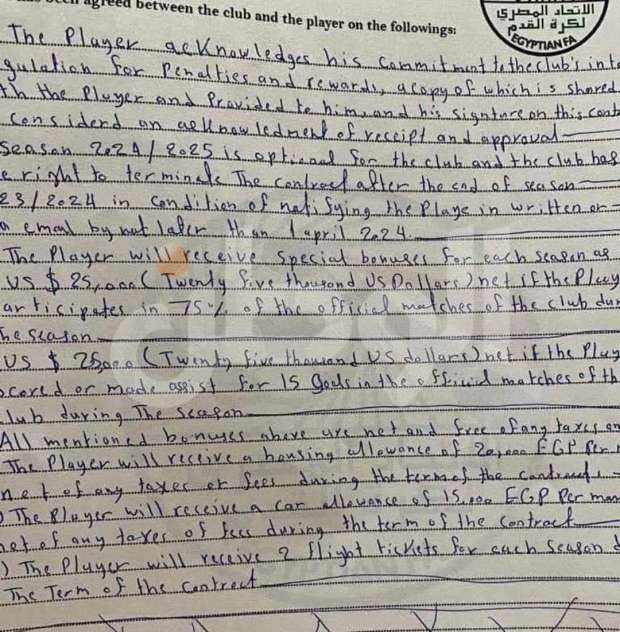 agreed between the club and the player on the followings:
الاتحاد المصري
لكرة القدم
EGYPTIAN FA
The Player acknowledges his commitment to the club's inte
gulation for Penalties and rewards, a copy of which is shared
th the Player and Provided to him, and his signture on this cont
considerd an acknowledment of receipt and approval
Season 2024/2025 is optional for the club and the club has
e right to terminate The contract after the end of season
23/2024 in condition of notifying the Playe in written or
n emal by not later than 1 april 2024
The Player will receive special bonuses for each season as
US $ 25,000 (Twenty five thousand US Dollars) net if the Play
articipates in 75% of the official matches of the club dur
he season.
US $ 25000 (Twenty five thousand US dollars) net if the Play
scored or made assist for 15 goals in the official matches of th
lub during The season
All mentioned bonuses above are net and free of any taxes an
The Player will receive a housing allowance of 20,000 EGP Per
net of any taxes or fees during the term of the contract
) The Player will receive a car allowance of 15.000 EGP Per mon
net of any taxes of fees during the term of the contract
) The Player will receive 2 flight tickets for each season d
The Term of the contract